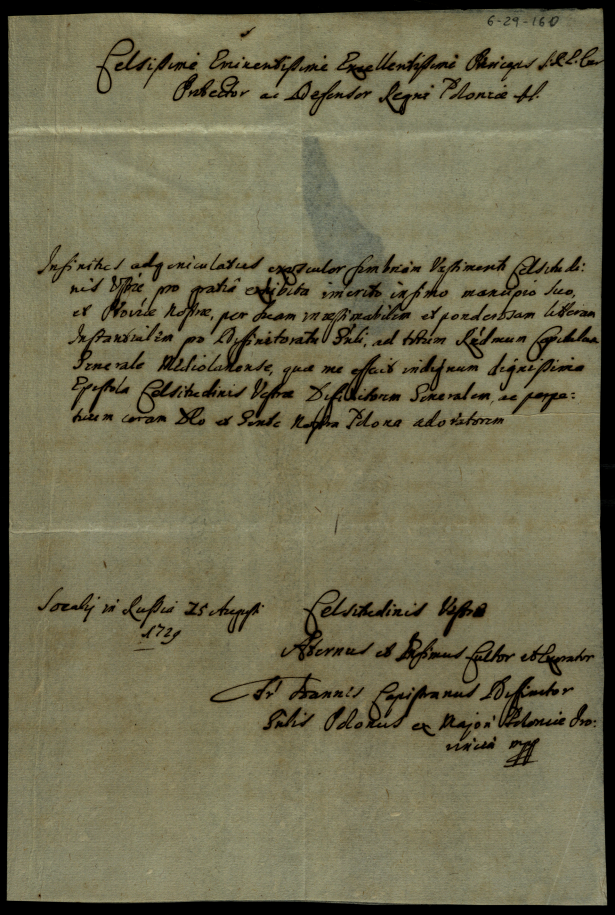 6-29-160
Celsissime Eminentissime Excellentissime Princeps S.R.E. Car
Protector ac Defensor Regni Poloniæ
Infinities adgeniculatus exosculor fimbriam Vestimenti Celsitudi-
nis Vestræ pro gratia exhibita imerito infimo mancipio suo,
et Proviæ Nostræ, per suam inæstimabilem et ponderosam litteram
Instantialem pro Diffinitoratu Gnli, ad totum Rndmum Capitulum
Generale Mediolanense, quæ me effecit indignum dignissima
Epistola Celsitudinis Vestræ Diffinitorem Generalem, ac perpe:
tuum coram Deo et Gente Nostra Polona adoratorem
Socalij in Russia 25 Augusti
1729
Celsitudinis Vestræ
Æternus et Cultor et
Fr Joannis Capistranus Diffinitor
Gnlis Polonus ex Majori Poloniæ Pro:
vincia mpp